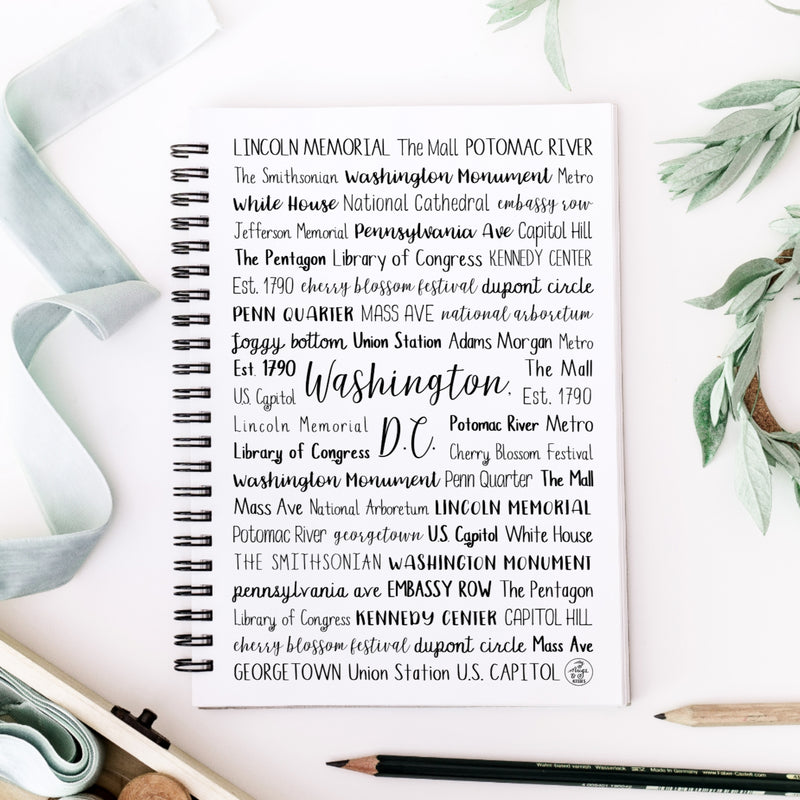 LINCOLN MEMORIAL The Mall POTOMAC RIVER
The Smithsonian Washington Monument Metro
White House National Cathedral embassy row
Jefferson Memorial Pennsylvania Ave Capitol Hill
The Pentagon Library of Congress KENNEDY CENTER
Est. 1790 cherry blossom festival dupont circle
PENN QUARTER MASS AVE national arboretum
foggy bottom Union Station Adams Morgan Metro
Est. 1790
U.S. Capitol
Washington,
The Mall
Est. 1790
Lincoln Memorial
Library of Congress
D.C.
Potomac River Metro
Cherry Blossom Festival
Washington Monument Penn Quarter The Mall
Mass Ave National Arboretum LINCOLN MEMORIAL
Potomac River georgetown U.S. Capitol White House
THE SMITHSONIAN WASHINGTON MONUMENT
pennsylvania ave EMBASSY ROW The Pentagon
Library of Congress KENNEDY CENTER CAPITOL HILL
cherry blossom festival dupont circle Mass Ave
GEORGETOWN Union Station U.S. CAPITOL
Made in Germany www.Faber-Castell